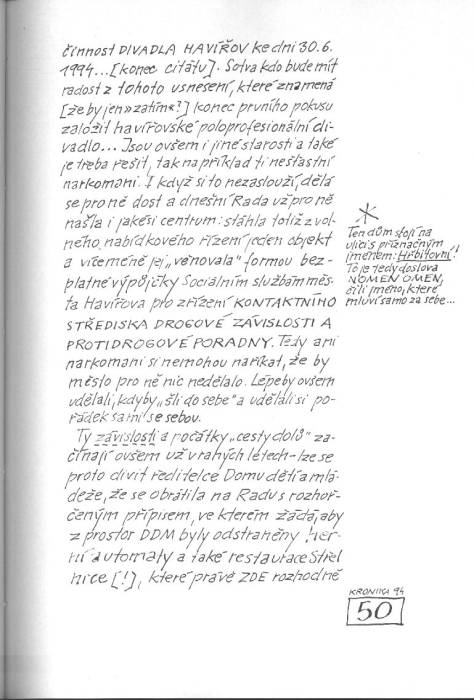 činnost DIVADLA HAVÍŘOV ke dni 30.6.
1994...[konec citátu]. Sotva kdo bude mít
radost z tohoto usnesení, které znamená
[že by jen »zatím«?] konec prvního pokusu
založit havířovské poloprofesionální di-
vadlo... Jsou ovšem i jiné starosti a také
je třeba řešit, tak například ti nešťastní
narkomani. I když si to nezaslouží, dělá
se pro ně dost a dnešní Rada už pro ně
našla i jakési centrum: stáhla totiž z vol-
ného nabídkového řízení jeden objekt
a víceméně jej „věnovala" formou bez-
platné výpůjčky Sociálním službám měs-
ta Havířova pro zřízení KONTAKTNÍHO
STŘEDISKA DROGOVÉ ZÁVISLOSTI A
PROTIDROGOVÉ PORADNY. Tedy ani
narkomani si nemohou naříkat, že by
město pro ně nic nedělalo. Lépe by ovšem
udělali, kdyby „šli do sebe" a udělali si po-
řádek sami se sebou.
Ty závislosti a počátky „cesty dolů" za-
čínají ovšem už v raných létech - lze se
proto divit ředitelce Domu dětí a mlá-
deže, že se obrátila na Radu s rozhoř-
čeným přípisem, ve kterém žádá, aby
z prostor DDM byly odstraněny her-
ní automaty a také restaurace Střel
nice [!], které právě ZDE rozhodně
*
Ten dům stojí na
ulici s příznačným
jménem: Hřbitovní!
To je tedy doslova
NOMEN OMEN,
čili jméno, které
mluví samo za sebe...
KRONIKA 94
50